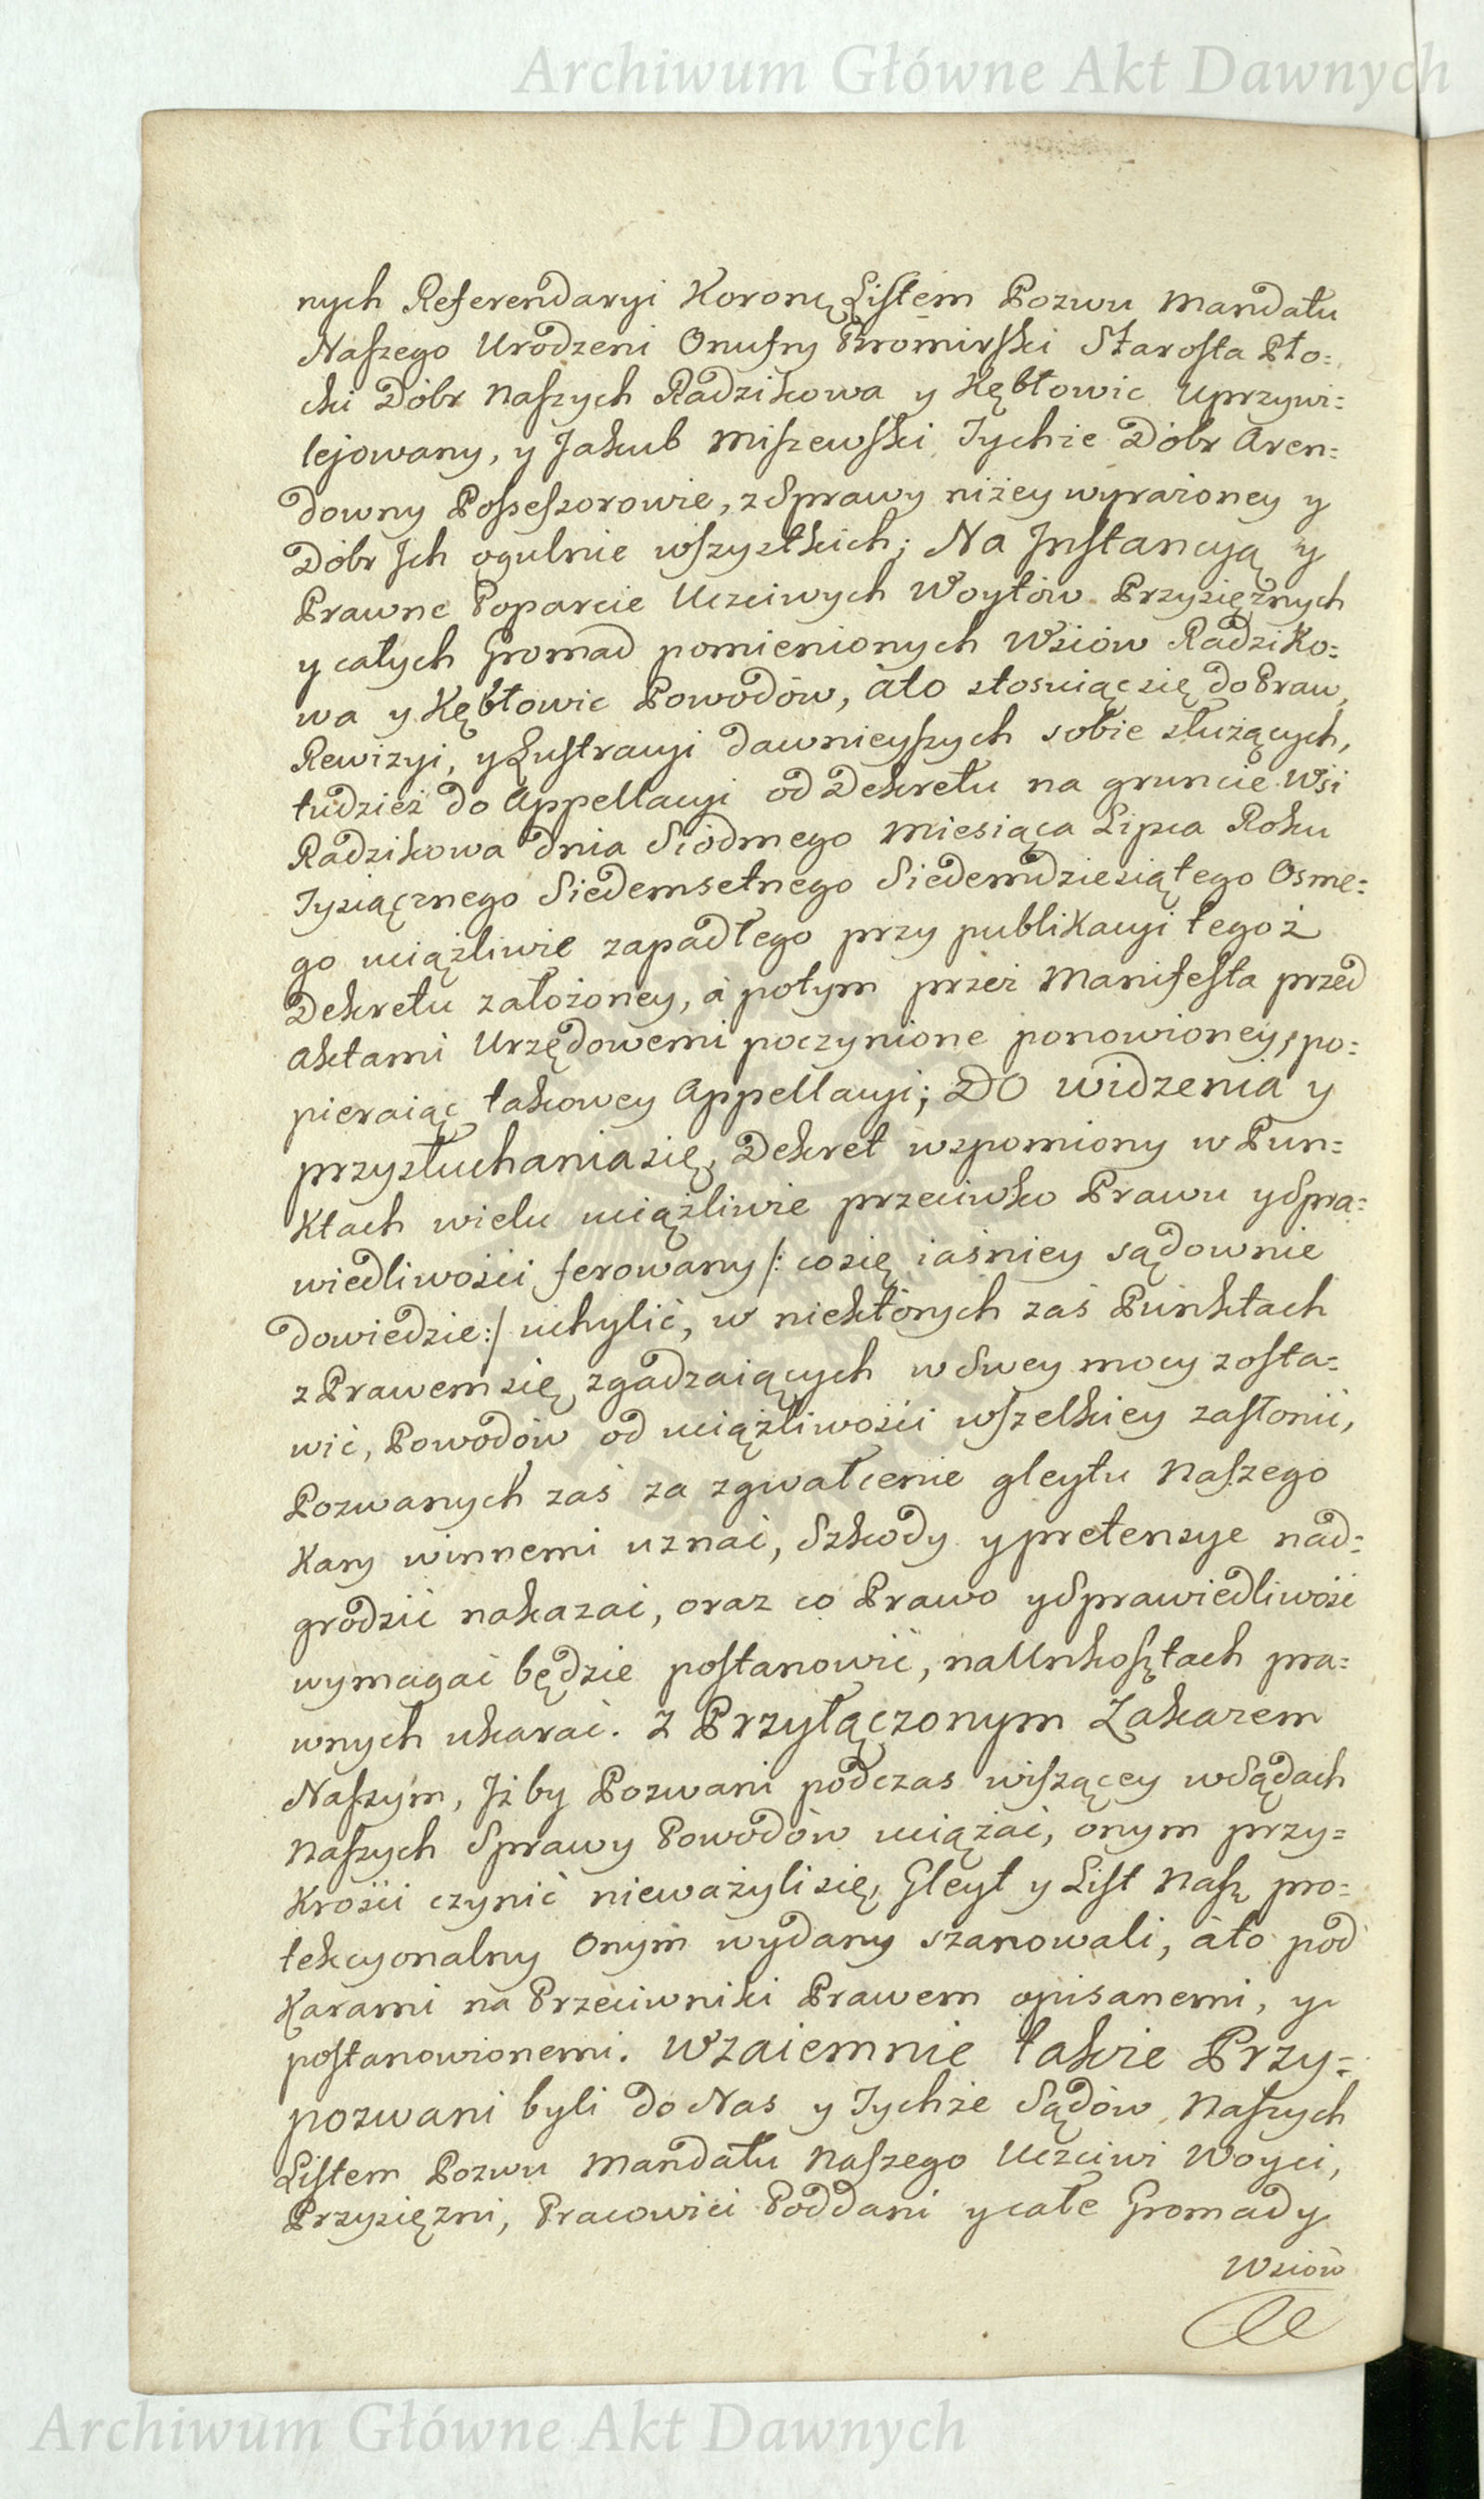 Archiwum Główne Akt Dawnych
nych Referendaryi Koronę Listem Pozwu Mandatu
Naszego Urodzeni Onufry Bromirski Starosta Pło=
cki Dóbr Naszych Radzikowa y Kębłowic Uprzywi=
lejowany, y Jakub Miszewski Tychże Dóbr Aren=
downy Possessorowie, z Sprawy niżey wyrażoney y
Dóbr Ich ogulnie wszystkich; Na Instancyą y
Prawne Poparcie Uczciwych Woytów Przysiężnych
y całych Gromad pomienionych Wsiów Radziko=
wa y Kębłowic Powodów, áto stosuiąc się do Praw,
Rewizyi, y Lustracyi dawnieyszych sobie służących,
tudzież do Appellacyi od Dekretu na gruncie Wsi
Radzikowa dnia Siódmego Miesiąca Lipca Roku
Tysiącznego Siedemsetnego Siedemdziesiątego Osme=
go uciążliwie zapadłego przy publikacyi tegoż
Dekretu założoney, á potym przez Manifesta przed
Aktami Urzędowemi poczynione ponowioney, po=
pieraiąc takowey Appellacyi; Do widzenia y
przysłuchania się, Dekret wspomiony w Pun=
ktach wielu uciążliwie przeciwko Prawu y Spra=
wiedliwości ferowany /: co się iaśniey sądownie
dowiedzie :/ uchylić, w niektórych zaś Punktach
z Prawem się zgadzaiących w Swey mocy zosta=
wić, Powodów od uciążliwości wszelkiey zasłonić,
Pozwanych zaś za zgwałcenie gleytu Naszego
Kary winnemi uznać, Szkody y pretensye nad=
grodzić nakazać, oraz co Prawo y Sprawiedliwość
wymagać będzie postanowić, na Unkosztach pra=
wnych ukarać. Z Przyłączonym Zakazem
Naszym, Iżby Pozwani podczas wiszącey w Sądach
Naszych Sprawy Powodów uciążać, onym przy=
krości czynić nieważyli się, Gleyt y List Nasz pro=
tekcyonalny Onym wydany szanowali, áto pod
Karami na Przeciwniki Prawem opisanemi, y
postanowionemi. Wzaiemnie także Przy=
pozwani byli do Nas y Tychże Sądów Naszych
Listem Pozwu Mandatu Naszego Uczciwi Woyci,
Przysiężni, Pracowici Poddani y całe Gromady
Wsiów
Archiwum Główne Akt Dawnych